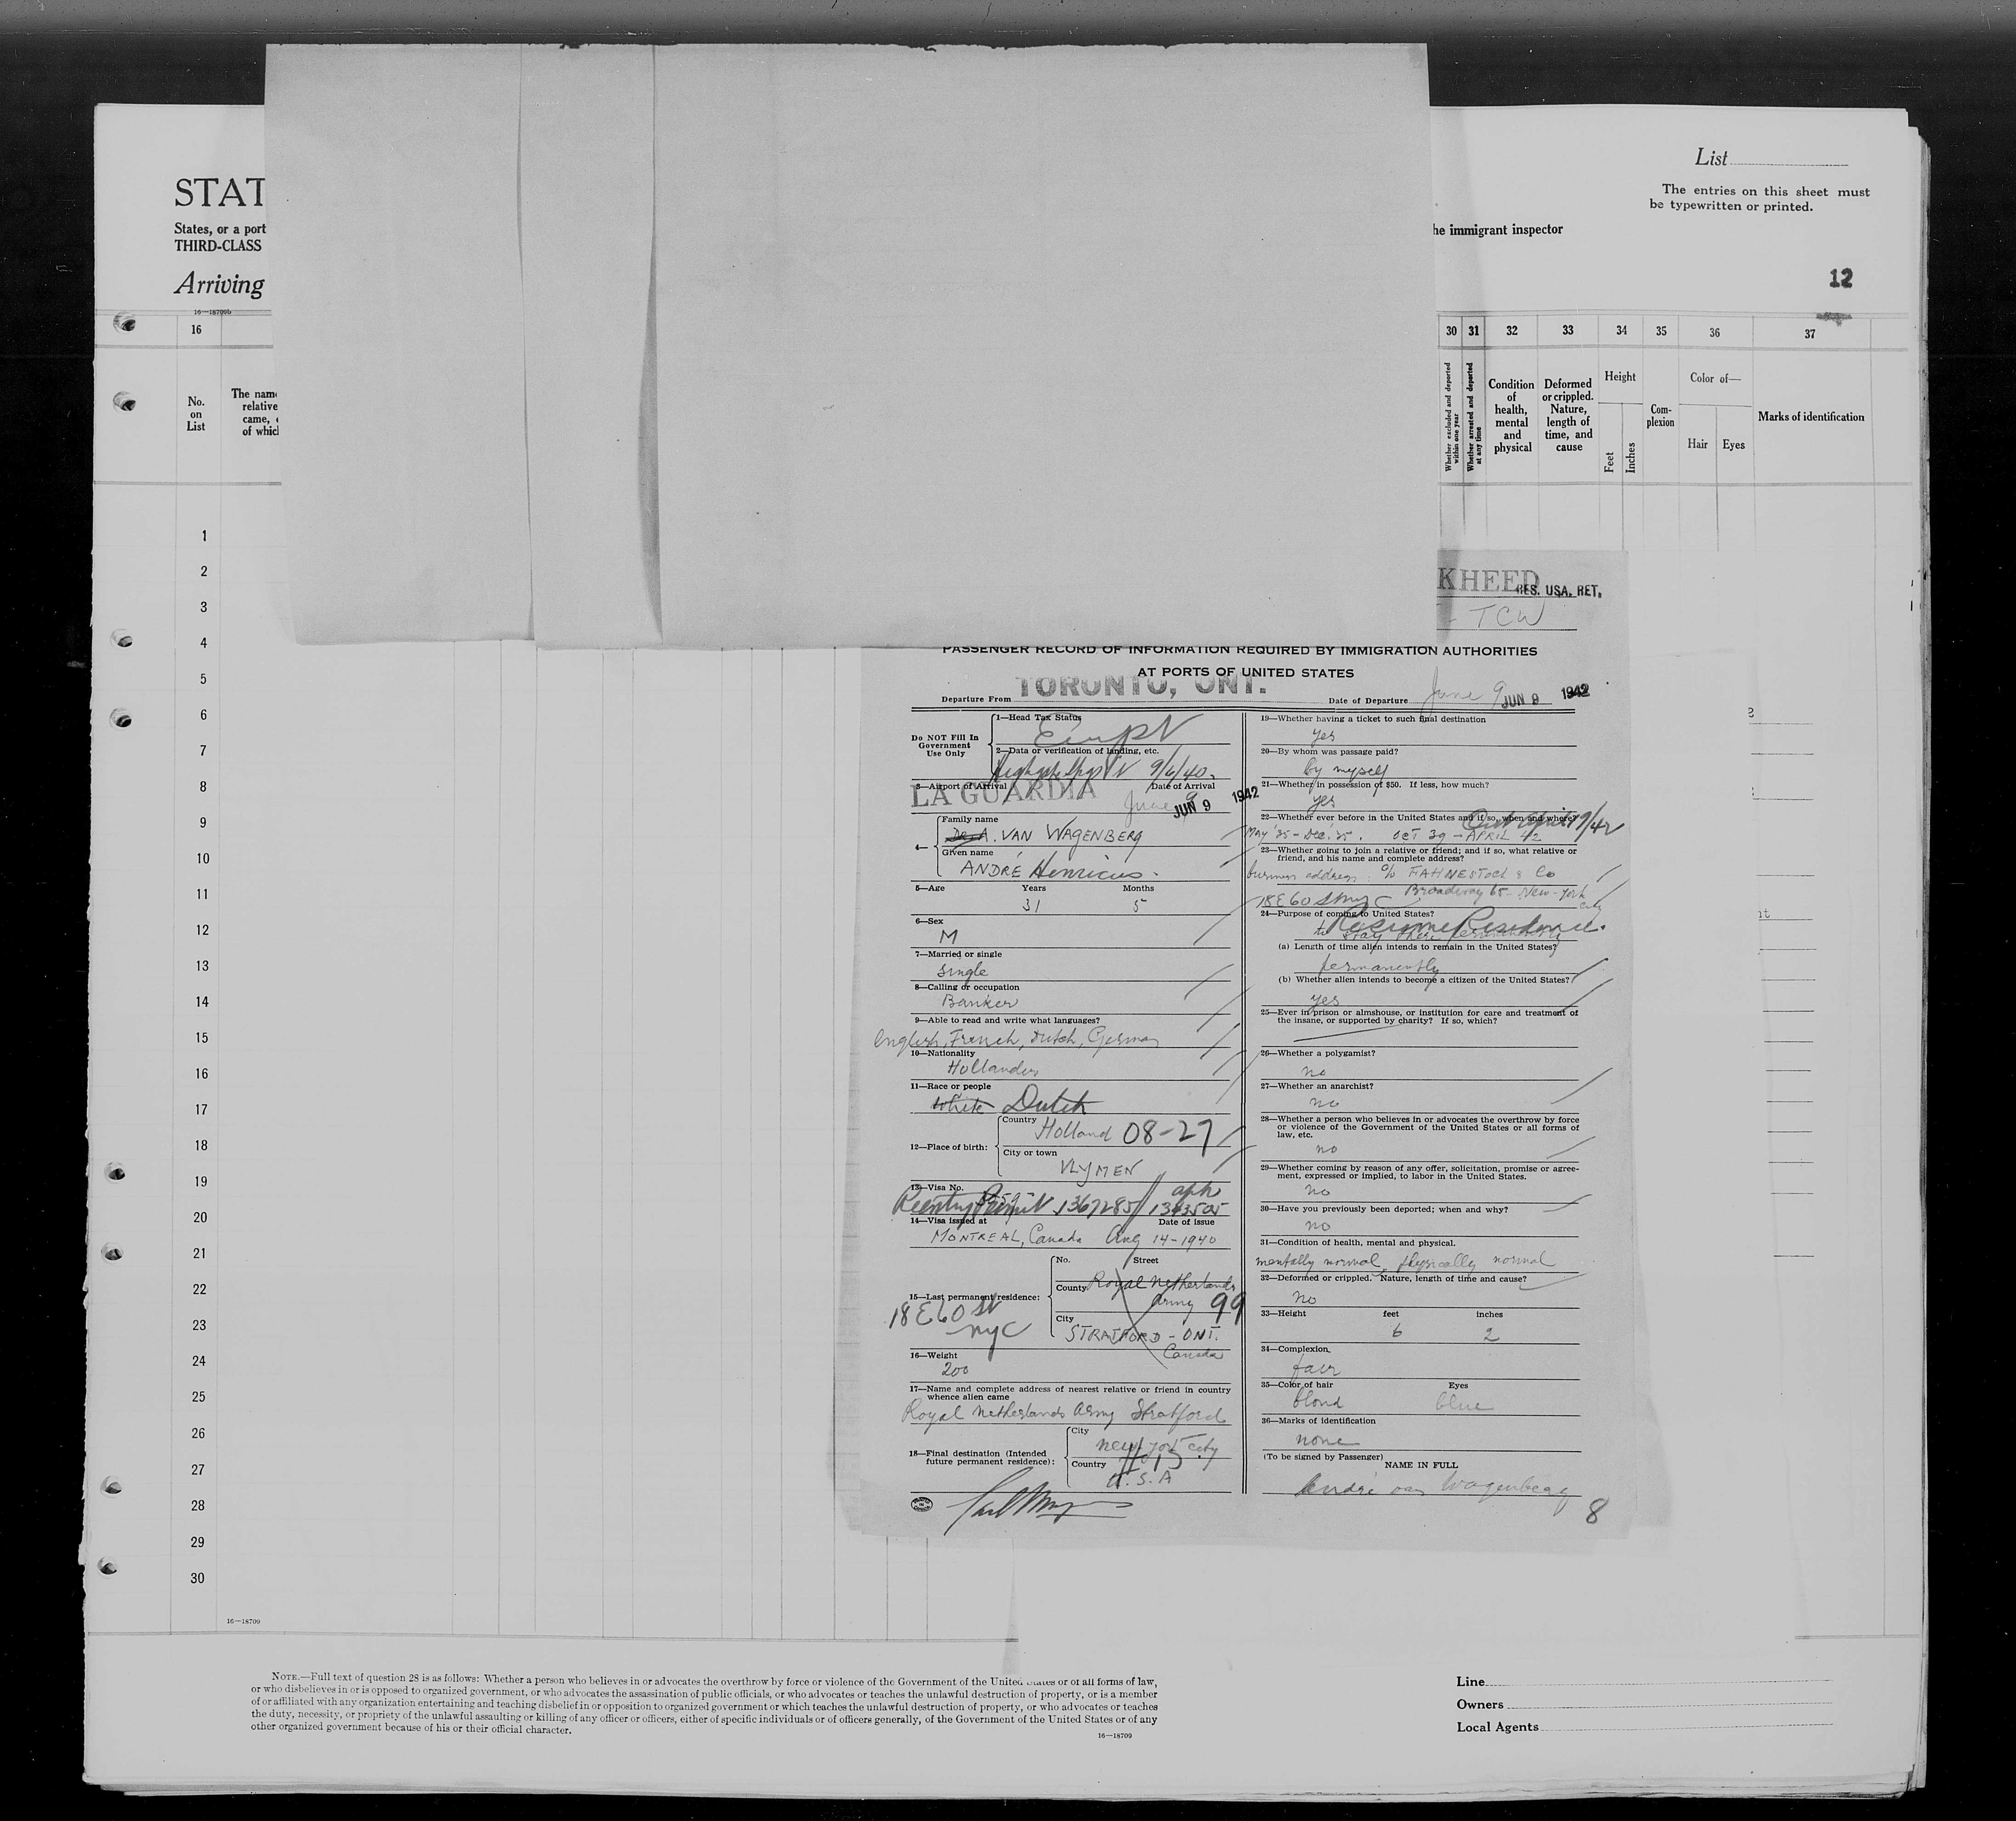 STAT
States, or a port
THIRD-CLASS
Arriving
List
The entries on this sheet must
be typewritten or printed.
he immigrant inspector
12
16—18709b
16
30 31 32 33 34 35 36 37
No.
on
List
The nam
relative
came,
of which
Whether excluded and deported within one year
Whether arrested and deported at any time
Condition
of
health,
mental
and
physical
Deformed
or crippled.
Nature,
length of
time, and
cause
Height
Feet
Inches
Com-
plexion
Color of—
Hair Eyes
Marks of identification
1
2
3
4
5
6
7
8
9
10
11
12
13
14
15
16
17
18
19
20
21
22
23
24
25
26
27
28
29
30
16—18709
KHEED
RES. USA. RET.
- TCW
PASSENGER RECORD OF INFORMATION REQUIRED BY IMMIGRATION AUTHORITIES
AT PORTS OF UNITED STATES
Departure From TORONTO, ONT. Date of Departure June 9 JUN 9 1942
Do NOT Fill In
Government
Use Only
1—Head Tax Status
2—Data or verification of landing, etc.
9/6/40.
3—Airport of Arrival Date of Arrival
LA GUARDIA June 9 JUN 9 1942
4—
Family name
Dr. A. VAN WAGENBERG
Given name
ANDRÉ Henricus.
5—Age Years Months
31 5
6—Sex
M
7—Married or single
single
8—Calling or occupation
Banker
9—Able to read and write what languages?
English, French, Dutch, German
10—Nationality
Hollander
11—Race or people
White Dutch
12—Place of birth:
Country
Holland 08-27
City or town
VLYMEN
13—Visa No.
Reentry Permit 1367285
14—Visa issued at Date of issue
MONTREAL, Canada Aug 14-1940
15—Last permanent residence:
18 E 60 St
NYC
No. Street
County Royal Netherlands
Army 99
City
STRATFORD - ONT.
Canada
16—Weight
200
17—Name and complete address of nearest relative or friend in country
whence alien came
Royal Netherlands Army Stratford
18—Final destination (Intended
future permanent residence):
City
New York City
Country
U.S.A
19—Whether having a ticket to such final destination
yes
20—By whom was passage paid?
by myself
21—Whether in possession of $50. If less, how much?
yes
22—Whether ever before in the United States and if so, when and where?
May '35 - Dec '35. OCT 39 - APRIL 42
23—Whether going to join a relative or friend; and if so, what relative or
friend, and his name and complete address?
business address: c/o FAHNESTOCK & Co
Broadway 65 - New-York
city
18 E 60 St NYC
24—Purpose of coming to United States?
Resume Residence.
to stay there permanently
(a) Length of time alien intends to remain in the United States?
permanently
(b) Whether alien intends to become a citizen of the United States?
yes
25—Ever in prison or almshouse, or institution for care and treatment of
the insane, or supported by charity? If so, which?
26—Whether a polygamist?
no
27—Whether an anarchist?
no
28—Whether a person who believes in or advocates the overthrow by force
or violence of the Government of the United States or all forms of
law, etc.
no
29—Whether coming by reason of any offer, solicitation, promise or agree-
ment, expressed or implied, to labor in the United States.
no
30—Have you previously been deported; when and why?
no
31—Condition of health, mental and physical.
mentally normal, physically normal
32—Deformed or crippled. Nature, length of time and cause?
No
33—Height feet inches
6 2
34—Complexion
fair
35—Color of hair Eyes
blond blue
36—Marks of identification
none
(To be signed by Passenger)
NAME IN FULL
André van Wagenberg
8
NOTE.—Full text of question 28 is as follows: Whether a person who believes in or advocates the overthrow by force or violence of the Government of the United States or of all forms of law,
or who disbelieves in or is opposed to organized government, or who advocates the assassination of public officials, or who advocates or teaches the unlawful destruction of property, or is a member
of or affiliated with any organization entertaining and teaching disbelief in or opposition to organized government or which teaches the unlawful destruction of property, or who advocates or teaches
the duty, necessity, or propriety of the unlawful assaulting or killing of any officer or officers, either of specific individuals or of officers generally, of the Government of the United States or of any
other organized government because of his or their official character.
16—18709
Line
Owners
Local Agents